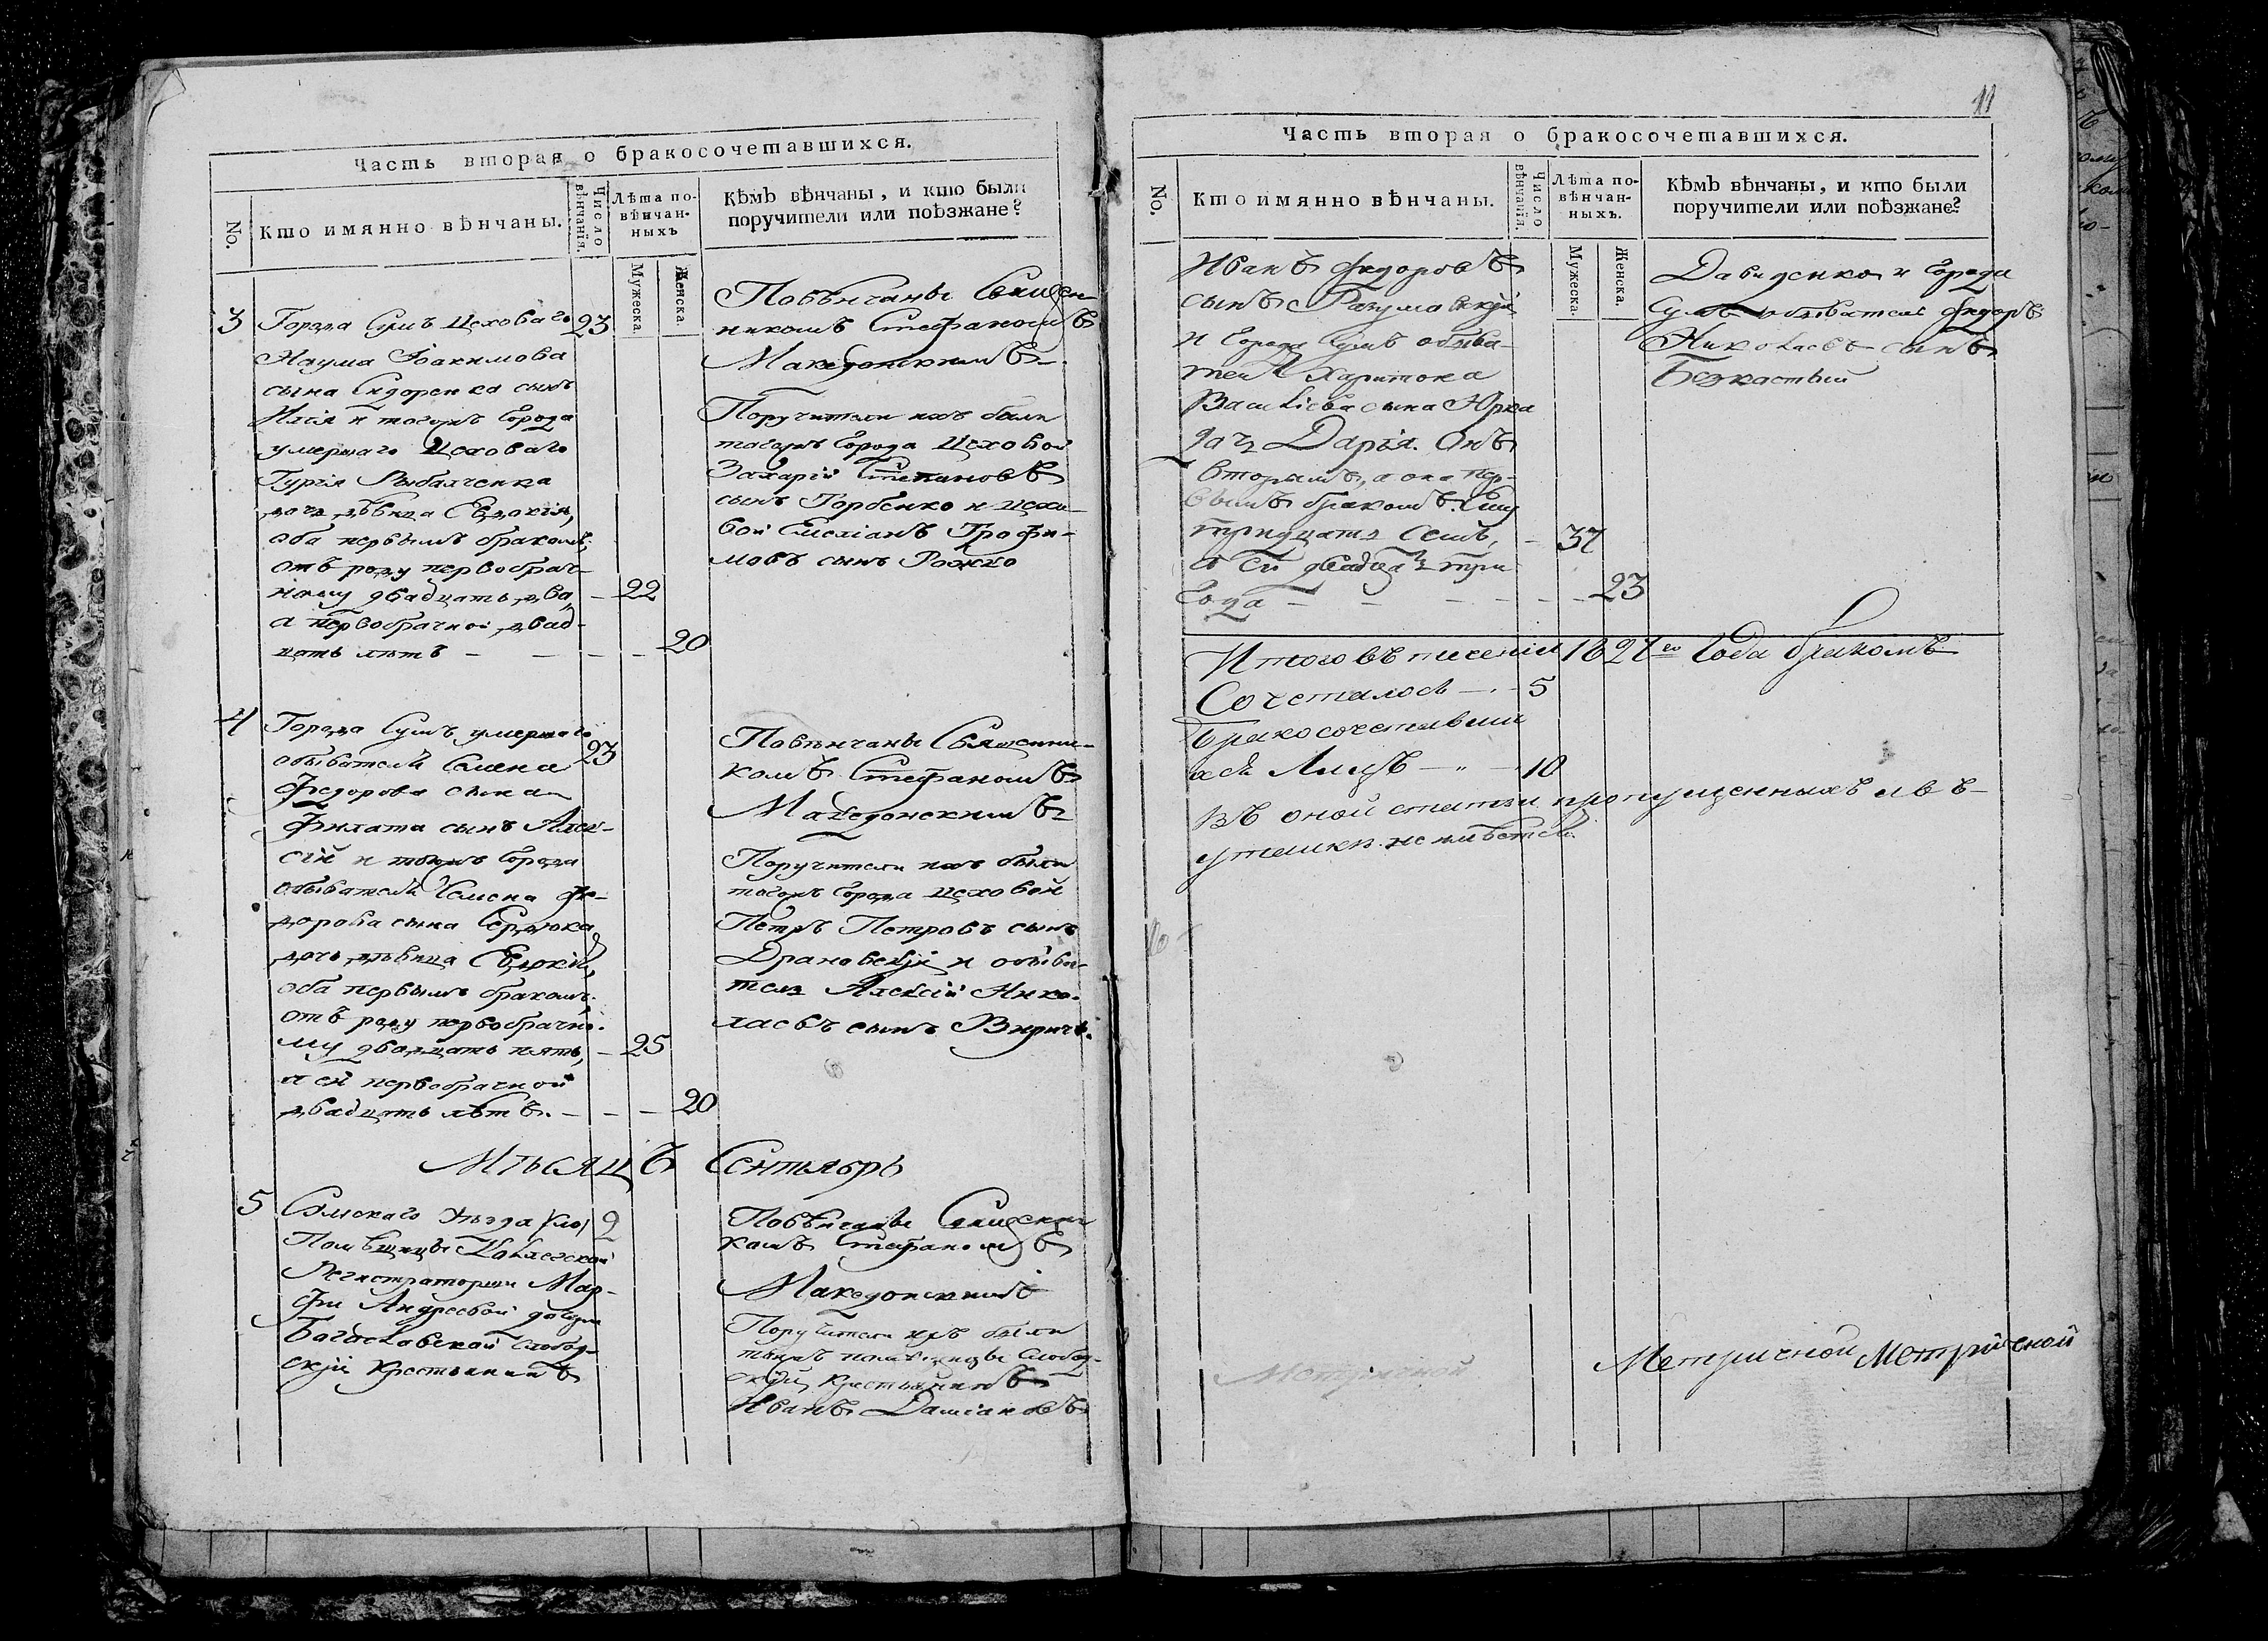 Часть вторая о бракосочетавшихся.
No.
Кто имянно вѣнчаны.
Число вѣнчанія.
Лѣта повѣнчанныхъ
Мужеска.
Женска.
Кѣмъ вѣнчаны, и кто были
поручители или поѣзжане?
3
Города Сумъ Цеховаго
23
Наума Іоакимова
сына Сидоренка сынъ
Илія и тогожъ Города
умершаго Цеховаго
Гурія Рыбалченка
дочь дѣвица Евдокія,
оба первымъ бракомъ,
отъ роду первобрач-
ному двадцать два,
— 22
а первобрачной двад-
цать лѣтъ — — — —
20
Повѣнчаны Священ-
никомъ Стефаномъ
Македонскимъ
Поручители ихъ были
тогожъ Города Цеховой
Захарій Степановъ
сынъ Горбенко и цехо-
вой Емеліанъ Трофи-
мовъ сынъ Рожко
4
Города Сумъ умершаго
23
обывателя Семена
Федорова сына
Филата сынъ Алек-
сій и тогожъ Города
обывателя Семена Фе-
дорова сына Сердюка
дочь дѣвица Евдокія,
оба первымъ бракомъ,
отъ роду первобрачно-
му двадцать пять,
— 25
а ей первобрачной
двадцать лѣтъ. — — —
20
Повѣнчаны Священни-
комъ Стефаномъ
Македонскимъ
Поручители ихъ были
тогожъ Города цеховой
Петръ Петровъ сынъ
Драновскій и обыва-
тель Алексій Нико-
лаевъ сынъ
Мѣсяцъ Сентябрь
5
Сумскаго Уѣзда
2
Помѣщицы Коллежской
Регистраторши Мар-
фы Андреевой дочери
Богославской Слобод-
скій Крестьянинъ
Повѣнчаны Священни-
комъ Стефаномъ
Македонскимъ
Поручители ихъ были
помѣщицы Слобод-
скій Крестьянинъ
Иванъ Даміановъ
11
Часть вторая о бракосочетавшихся.
No.
Кто имянно вѣнчаны.
Число вѣнчанія.
Лѣта повѣнчанныхъ.
Мужеска.
Женска.
Кѣмъ вѣнчаны, и кто были
поручители или поѣзжане?
Иванъ Федоровъ
сынъ Разумовскій
и Города Сумъ обыва-
теля Харитона
Василіева сына Юрка
дочь Дарія. Онъ
вторымъ, а она пер-
вымъ бракомъ. Ему
тридцать семь,
— 37
а ей двадцать три
Года — — — — — —
23
Давиденко и Города
Сумъ обыватель Федоръ
Николаевъ сынъ
Итого въ теченіи 1827го Года бракомъ
Сочеталось — 5
Бракосочетавши
хся Лицъ — 10
Въ оной статьи пропущенныхъ и въ
утайки не имѣется
Метричной
Метричной Метричной